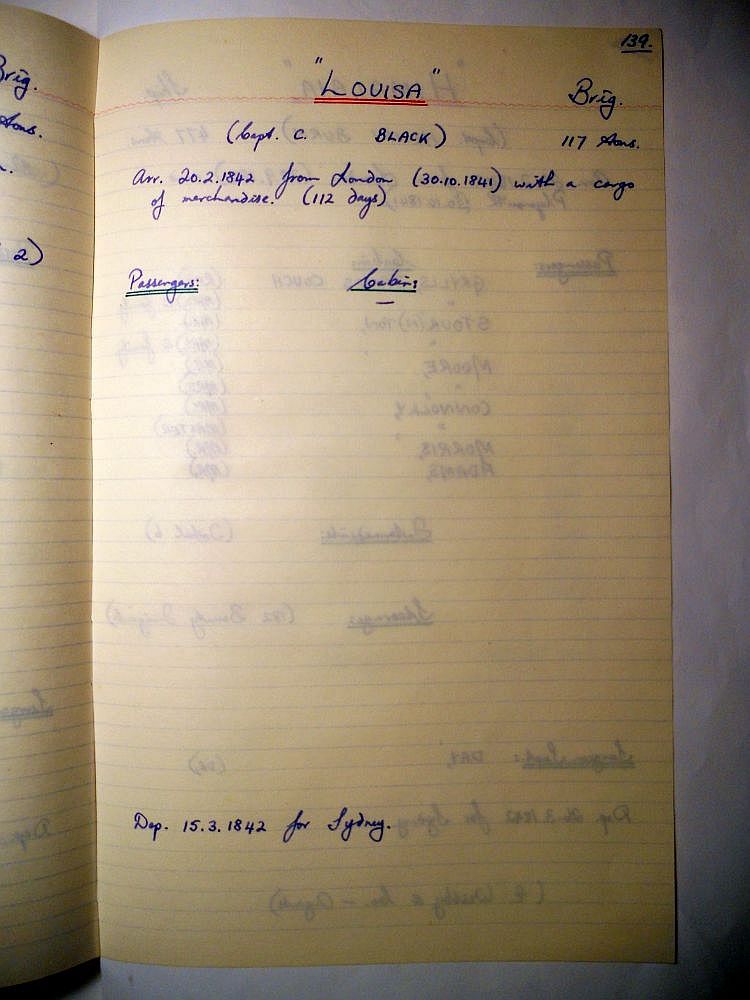 139.
"LOUISA" Brig.
(Capt. C. BLACK) 117 tons.
Arr. 20.2.1842 from London (30.10.1841) with a cargo
of merchandise. (112 days)
Passengers: Cabin:
—
Dep. 15.3.1842 for Sydney.
Brig.
tons.
2)